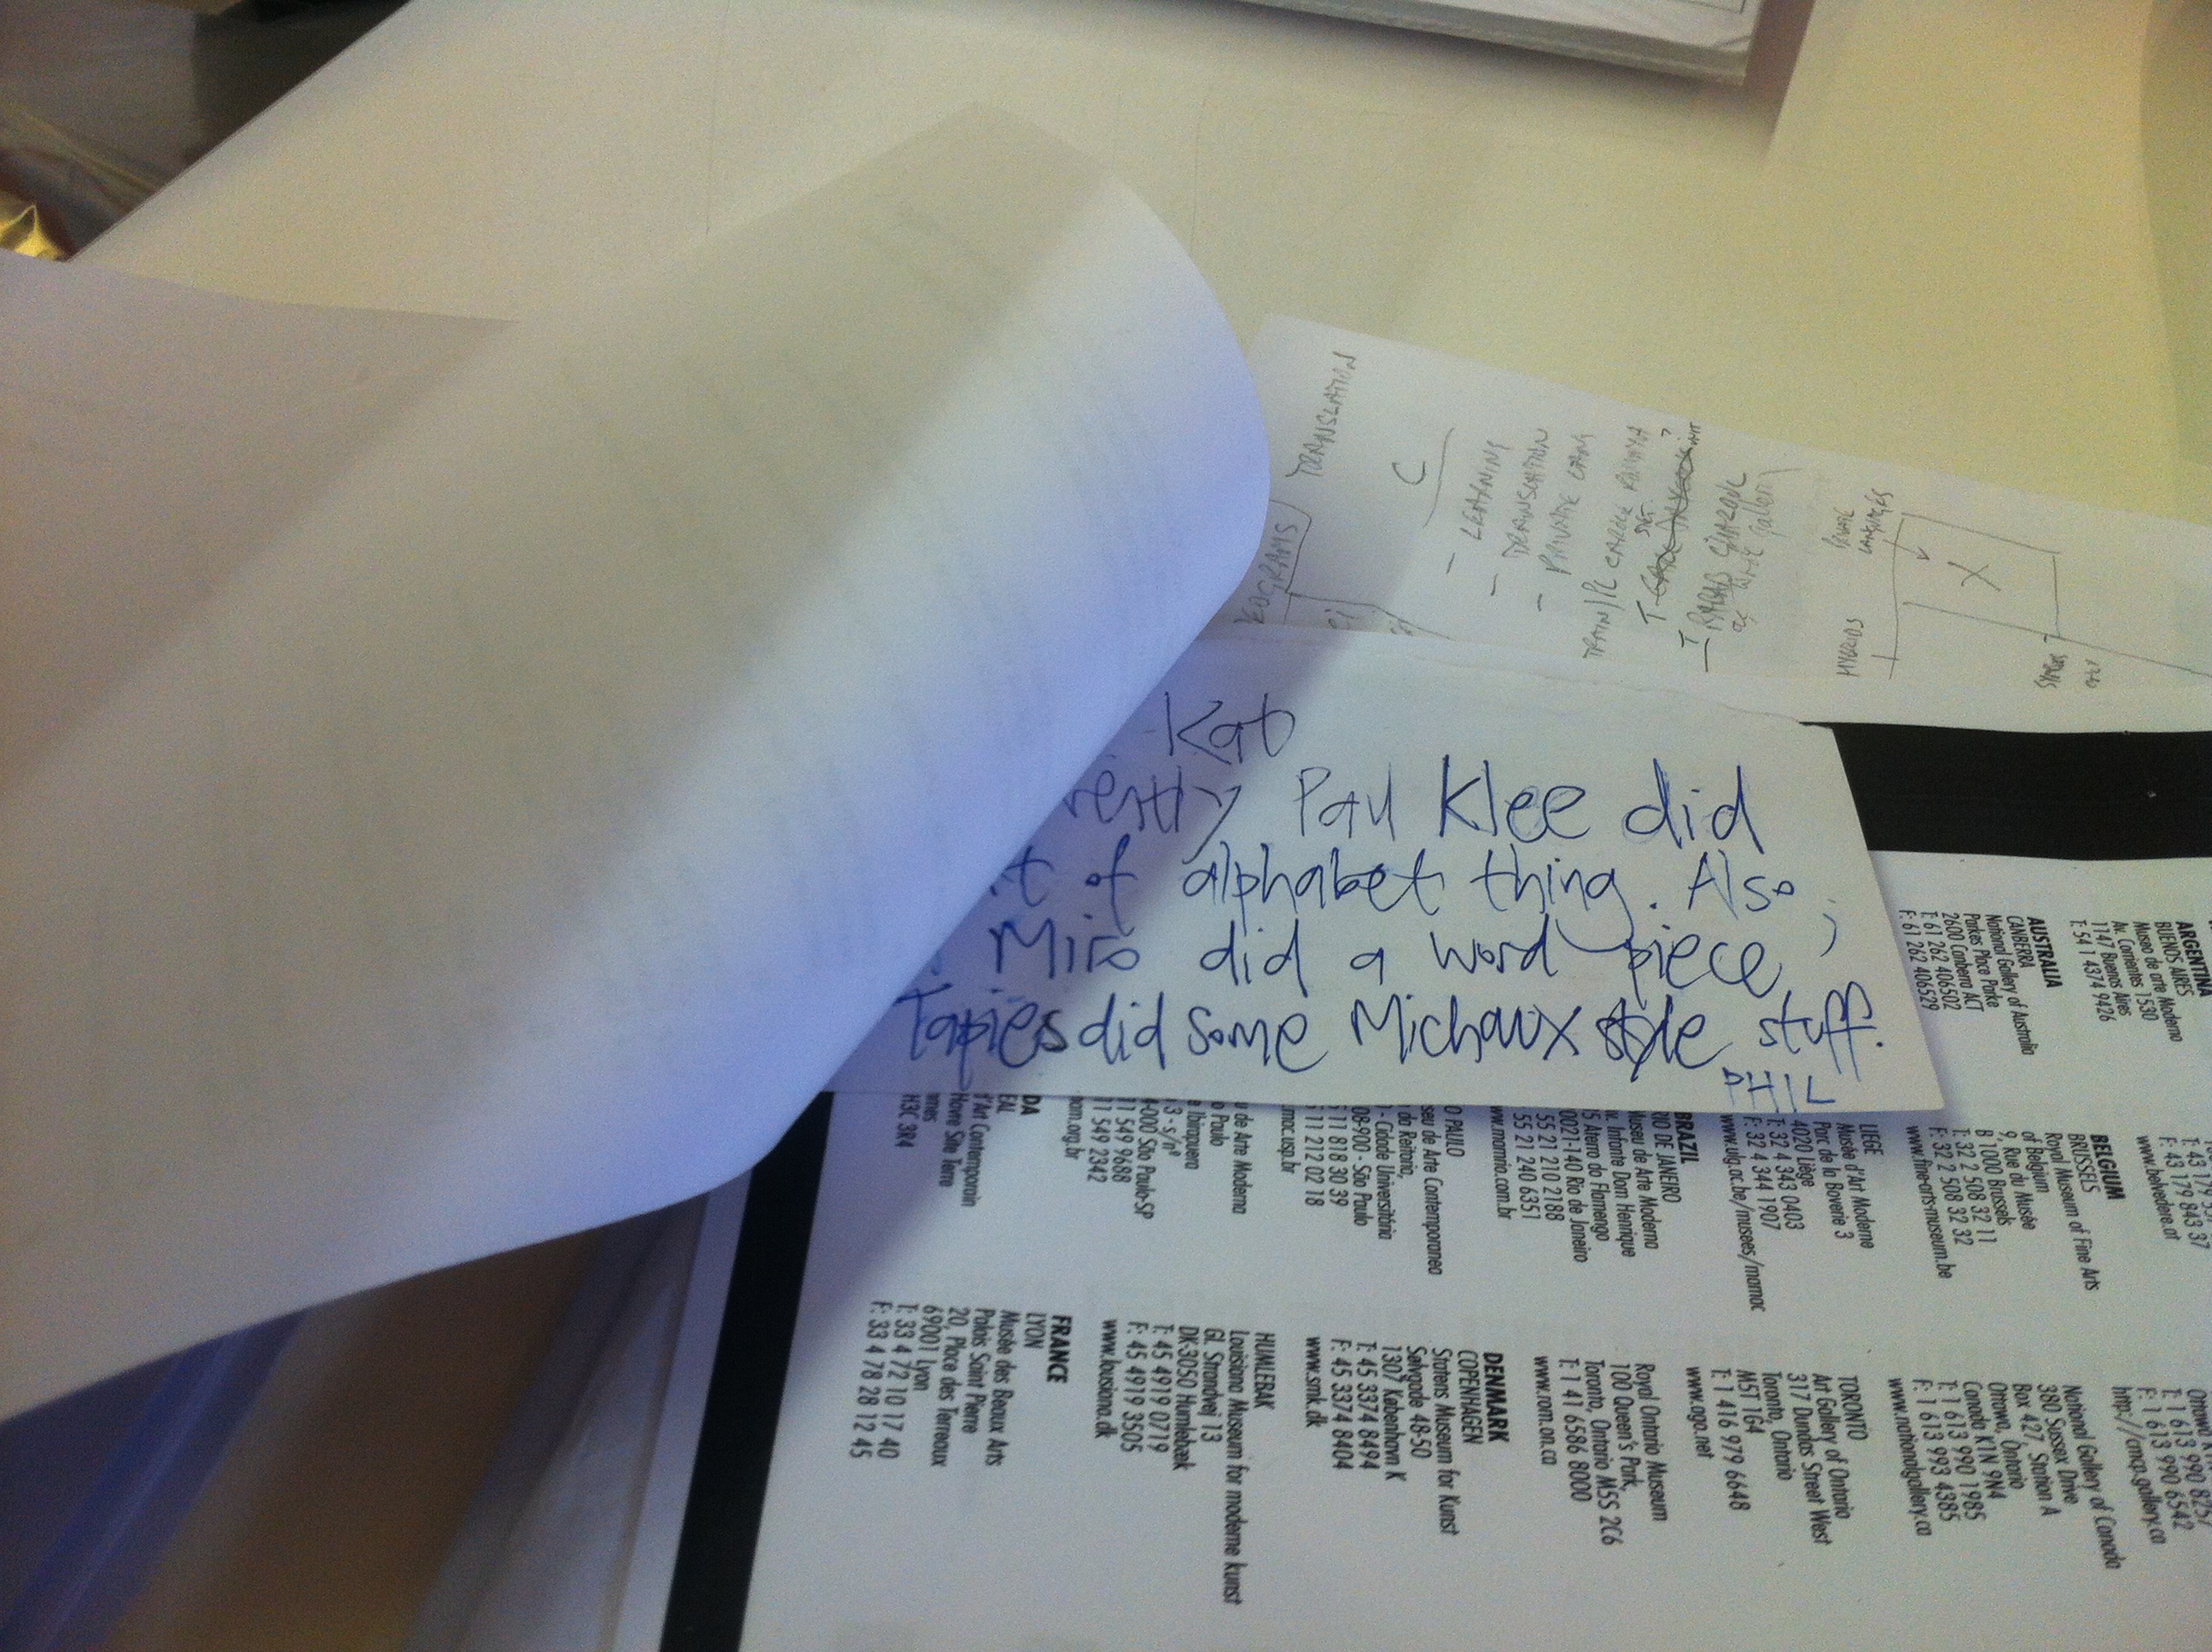 TRANSLATION
C
- LEARNING
- TRANSLATION
- PRIVATE
HYBRIDS
LANGUAGES
X
Kat
Paul Klee did
of alphabet thing. Also,
Miro did a word-piece,
Tapies did some Michaux style stuff.
PHIL
ARGENTINA
BUENOS AIRES
Museo de arte Moderno
Av. Corrientes 1530
1147 Buenos Aires
T: 54 11 4374 9426
AUSTRALIA
CANBERRA
National Gallery of Australia
Parkes Place Parke
2600 Canberra ACT
T: 61 262 406502
F: 61 262 406529
F: 43 179 843 37
www.belvedere.at
BELGIUM
BRUSSELS
Royal Museum of Fine Arts
of Belgium
9, Rue du Musée
B 1000 Brussels
T: 32 2 508 32 11
F: 32 2 508 32 32
www.fine-arts-museum.be
LIEGE
Musée d'Art Moderne
Parc de la Boverie 3
4020 Liège
T: 32 4 343 0403
F: 32 4 344 1907
www.ulg.ac.be/musees/mamac
BRAZIL
RIO DE JANEIRO
Museu de Arte Moderna
Av. Infante Dom Henrique
85 Aterro do Flamengo
0021-140 Rio de Janeiro
55 21 210 2188
55 21 240 6351
www.mamrio.com.br
O PAULO
seu de Arte Contemporanea
da Reitoria,
- Cidade Universitária
08-900 - São Paulo
11 818 30 39
11 212 02 18
mac.usp.br
de Arte Moderna
o Paulo
e Ibirapuera
3 - s/nº
4-000 São Paulo-SP
11 549 9688
11 549 2342
mam.org.br
DA
EAL
d'Art Contemporain
Havre Site Terre
H3C 3R4
T: 1 613 990 8257
F: 1 613 990 6542
http://cmcp.gallery.ca
National Gallery of Canada
380 Sussex Drive
Box 427 Station A
Ottawa, Ontario
Canada K1N 9N4
T: 1 613 990 1985
F: 1 613 993 4385
www.nationalgallery.ca
TORONTO
Art Gallery of Ontario
317 Dundas Street West
Toronto, Ontario
M5T 1G4
T: 1 416 979 6648
www.ago.net
Royal Ontario Museum
100 Queen's Park,
Toronto, Ontario M5S 2C6
T: 1 41 6586 8000
www.rom.on.ca
DENMARK
COPENHAGEN
Statens Museum for Kunst
Sølvgade 48-50
1307 København K
T: 45 3374 8494
F: 45 3374 8404
www.smk.dk
HUMLEBAK
Louisiana Museum for moderne kunst
GL Strandvej 13
DK-3050 Humlebaek
T: 45 4919 0719
F: 45 4919 3505
www.lousiana.dk
FRANCE
LYON
Musée des Beaux Arts
Palais Saint Pierre
20, Place des Terreaux
69001 Lyon
T: 33 4 72 10 17 40
F: 33 4 78 28 12 45